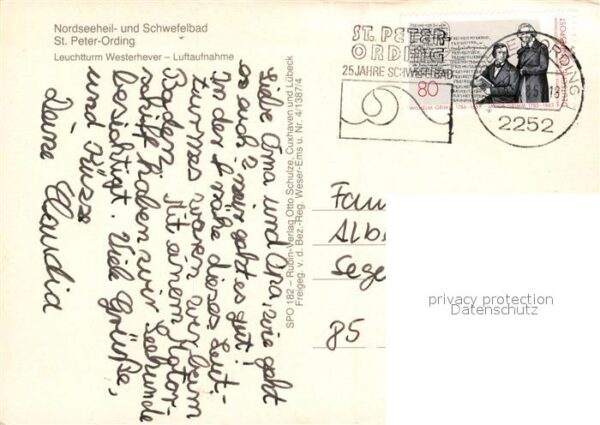 Nordseeheil- und Schwefelbad
St. Peter-Ording
Leuchtturm Westerhever – Luftaufnahme
Liebe Oma und Opa, wie geht
es euch? Mir geht es gut!
In der Nähe dieses Leut-
turmes waren wir beim
Baden. Mit einem Motor-
schiff haben wir Seehunde
besichtigt. Viele Grüße,
und Küsse
Deine Claudia
SPO 182 – Rubin-Verlag Otto Schulze, Cuxhaven und Lübeck
Freigeg. v. d. Bez.-Reg. Weser-Ems u. Nr. 4/1387/4
ST. PETER-
ORDING
25 JAHRE SCHWEFELBAD
80
DEUTSCHE BUNDESPOST
2252
Fam
Alb
Sege
85
privacy protection
Datenschutz